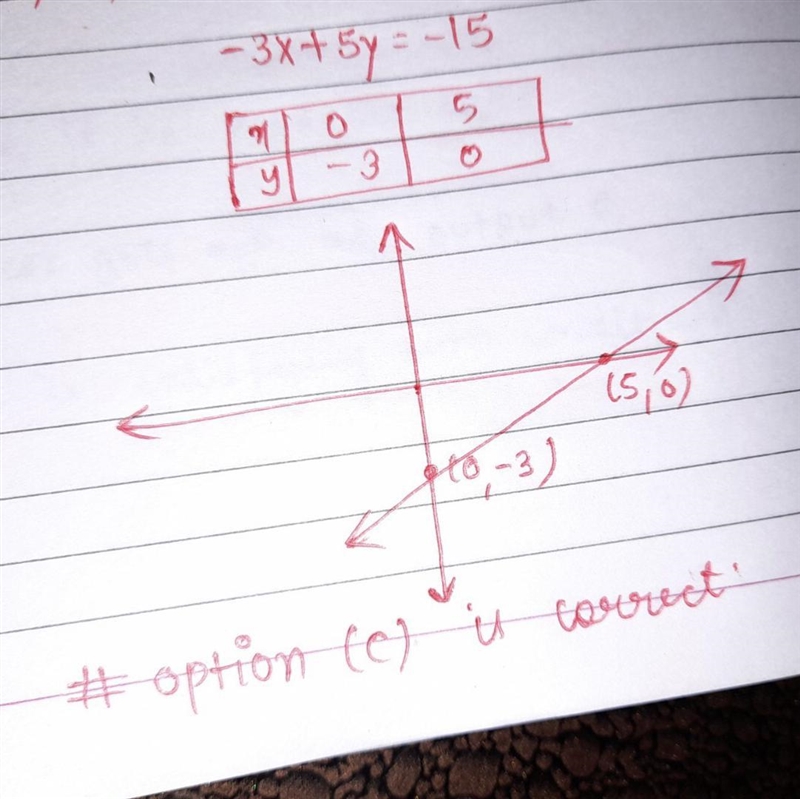 -3x+5y=-15
x 0 5
y -3 0
(5,0)
(0,-3)
# option (c) is correct.